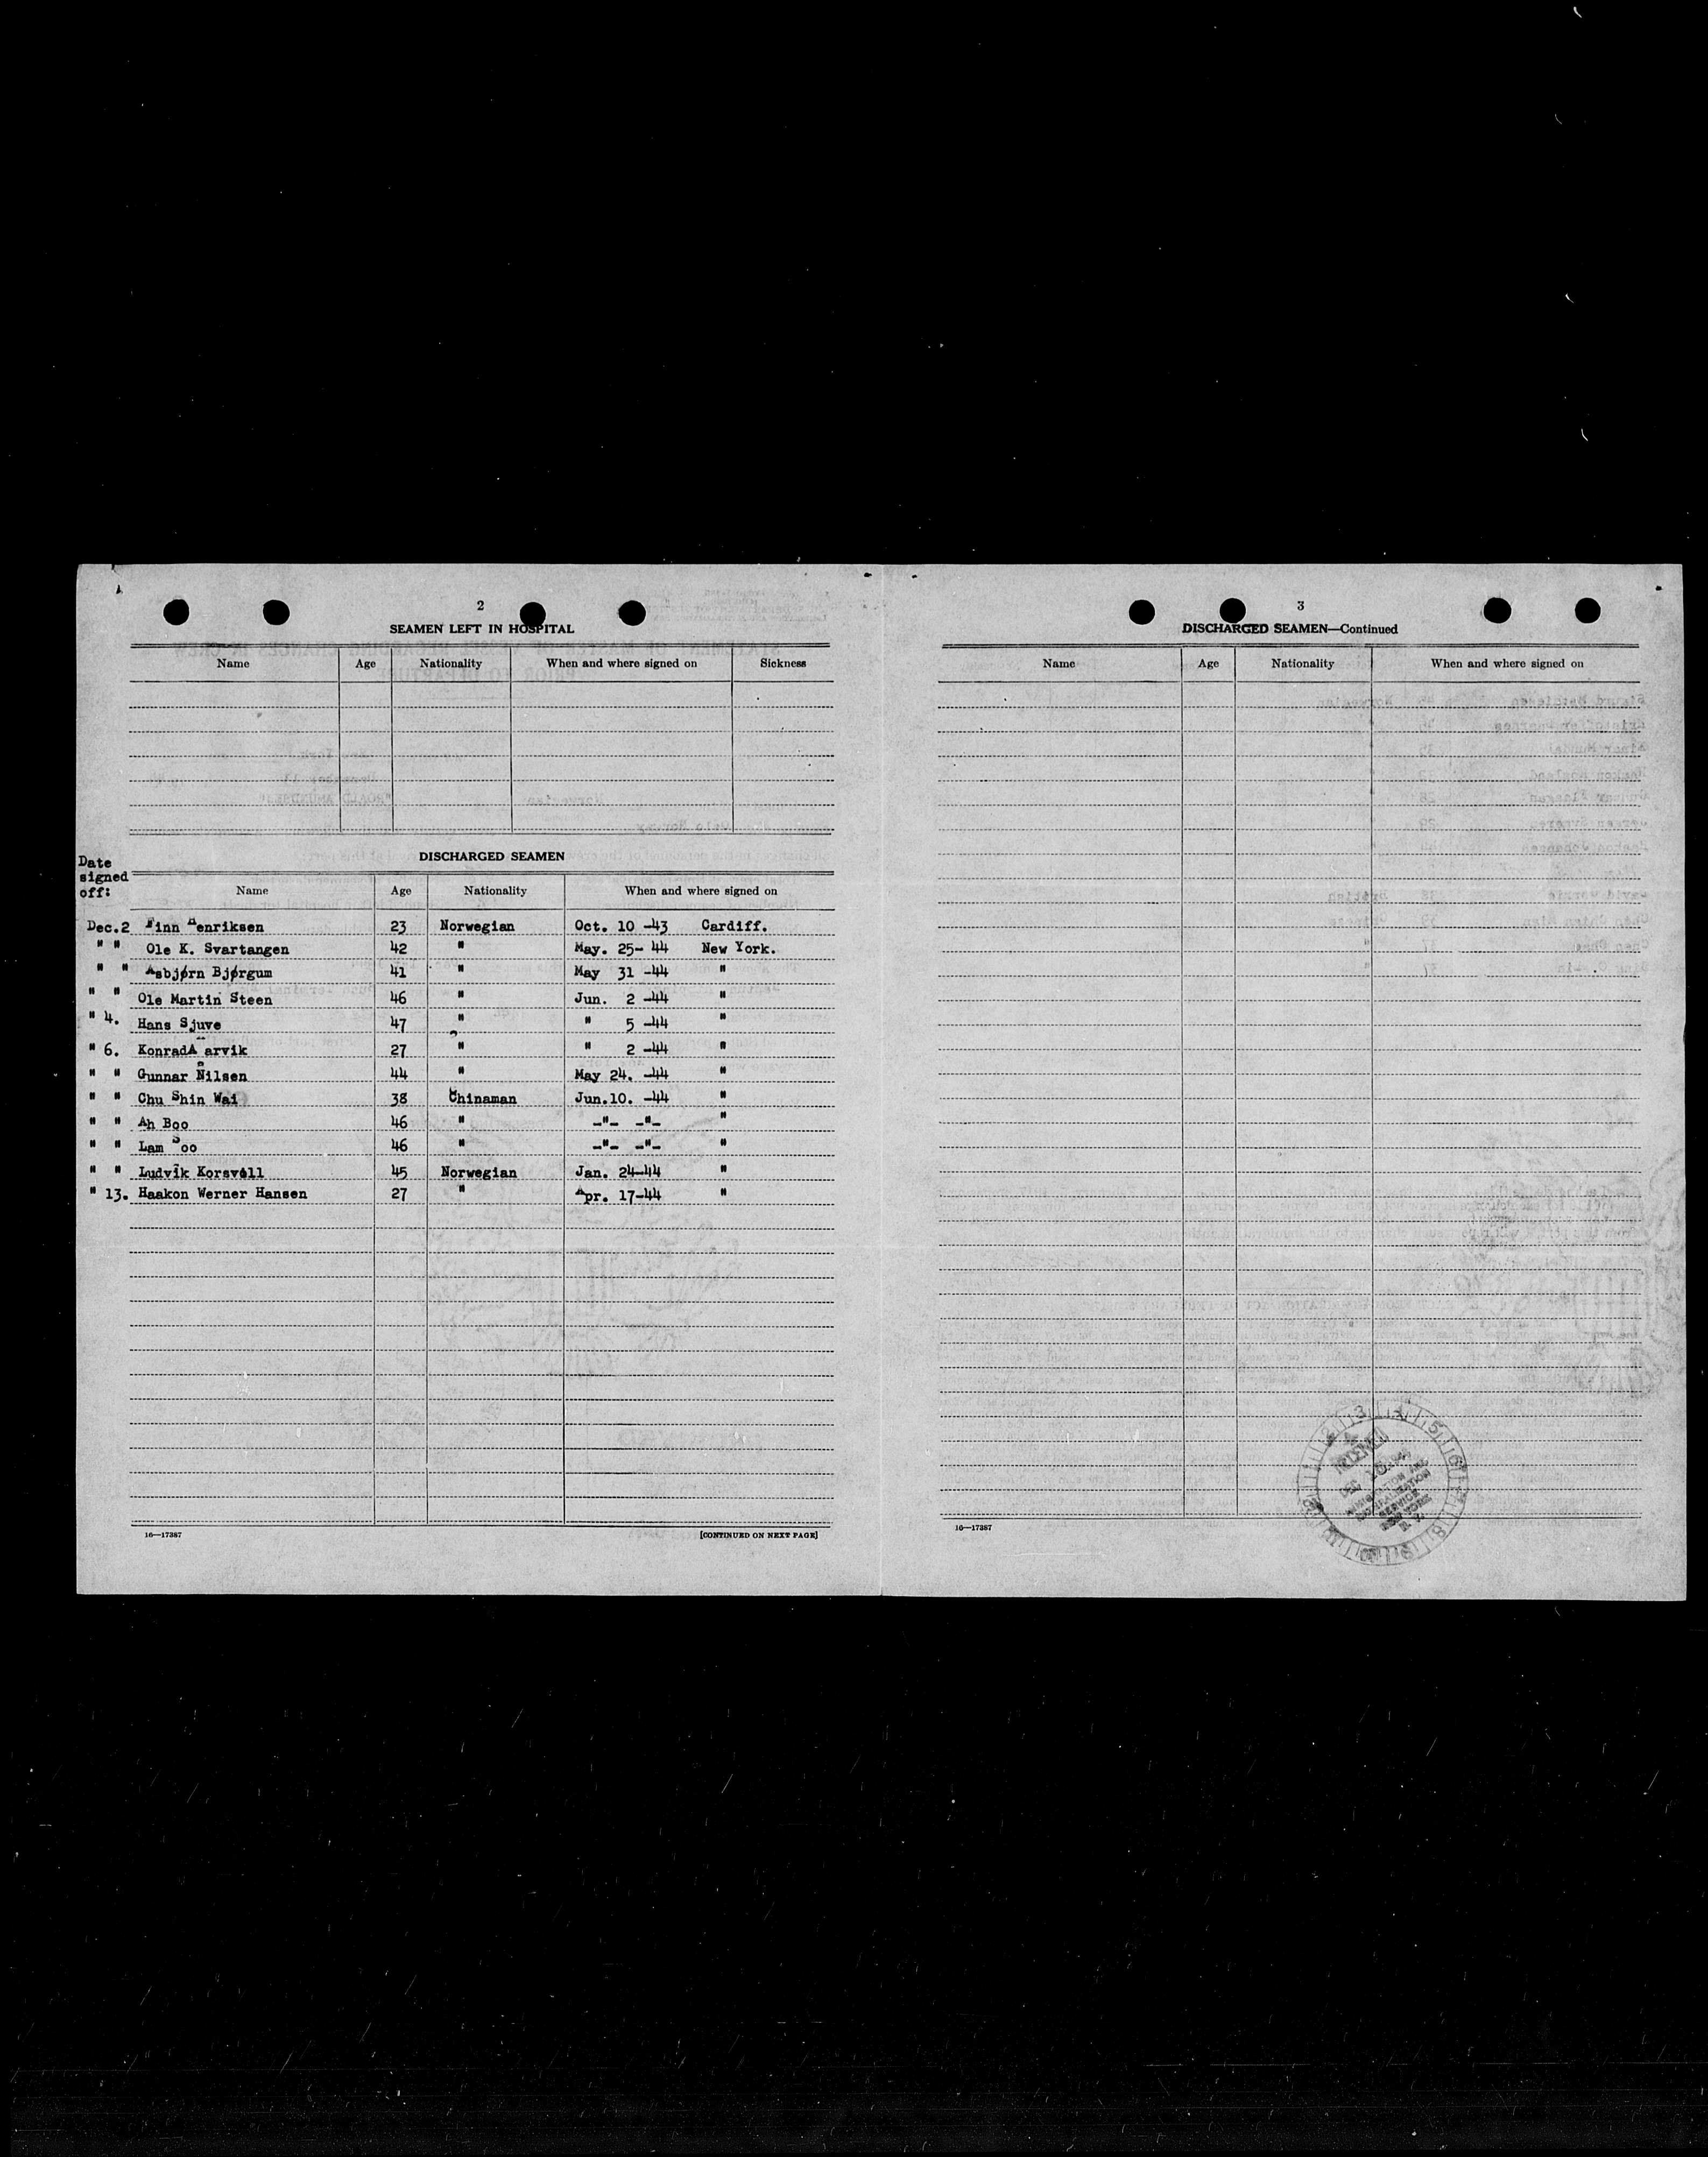 2
SEAMEN LEFT IN HOSPITAL
Name Age Nationality When and where signed on Sickness
DISCHARGED SEAMEN
Date signed off: Name Age Nationality When and where signed on
Dec.2 Finn Henriksen 23 Norwegian Oct. 10 -43 Cardiff.
" " Ole K. Svartangen 42 " May. 25- 44 New York.
" " Asbjørn Bjørgum 41 " May 31 -44 "
" " Ole Martin Steen 46 " Jun. 2 -44 "
" 4. Hans Sjuve 47 " " 5 -44 "
" 6. Konrad 27 " " 2 -44 "
" " Gunnar Nilsen 44 " May 24. -44 "
" " Chu Shin Wai 38 Chinaman Jun.10. -44 "
" " Ah Boo 46 " -"- -"- "
" " Lam 46 " -"- -"- "
" " Ludvik 45 Norwegian Jan. 24-44 "
" 13. Haakon Werner Hansen 27 " Apr. 17-44 "
16—17387 [CONTINUED ON NEXT PAGE]
3
DISCHARGED SEAMEN—Continued
Name Age Nationality When and where signed on
RECEIVED
DEC
IMMIGRATION AND
NATURALIZATION
SERVICE
NEW YORK
N. Y.
16—17387